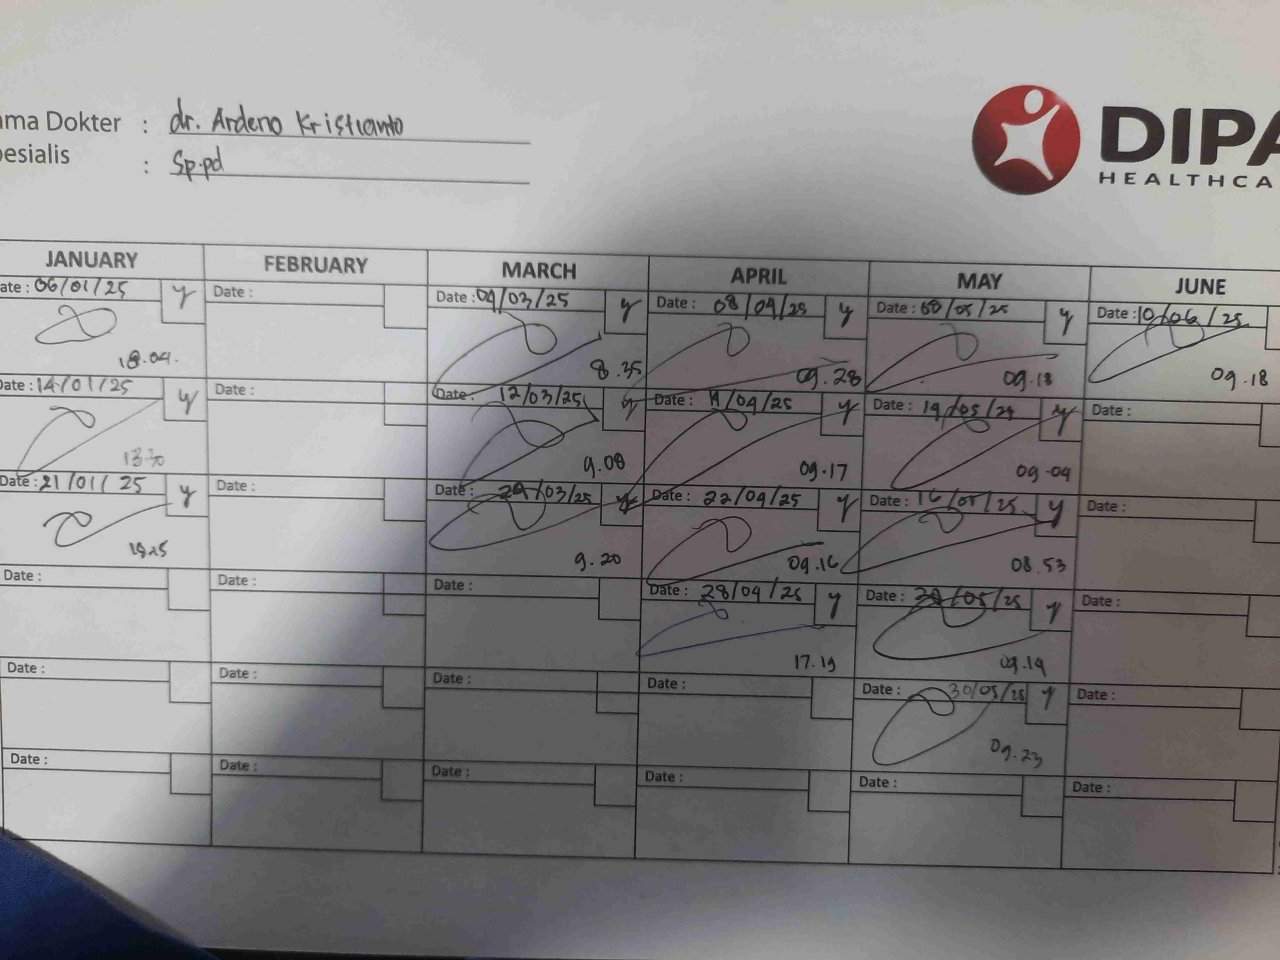 ama Dokter : dr. Ardeno Kristianto
pesialis : Sp.pd
DIPA
HEALTHCA
JANUARY FEBRUARY MARCH APRIL MAY JUNE
ate : 06/01/25 y Date : Date : 04/03/25 y Date : 08/04/25 y Date : 08/05/25 y Date : 10/06/25
18.04. 8.35 09.28 09.13 09.18
Date : 14/01/25 y Date : Date : 12/03/25 y Date : /04/25 y Date : 14/05/25 y Date :
13.30 9.08 09.17 09.04
Date : 21/01/25 y Date : Date : /03/25 y Date : 22/04/25 y Date : 16/05/25 y Date :
9.20 09.16 08.53
Date : Date : Date : Date : 28/04/25 y Date : /05/25 y Date :
17.19 09.14
Date : Date : Date : Date : Date : 30/05/25 y Date :
09.23
Date : Date : Date : Date : Date : Date :